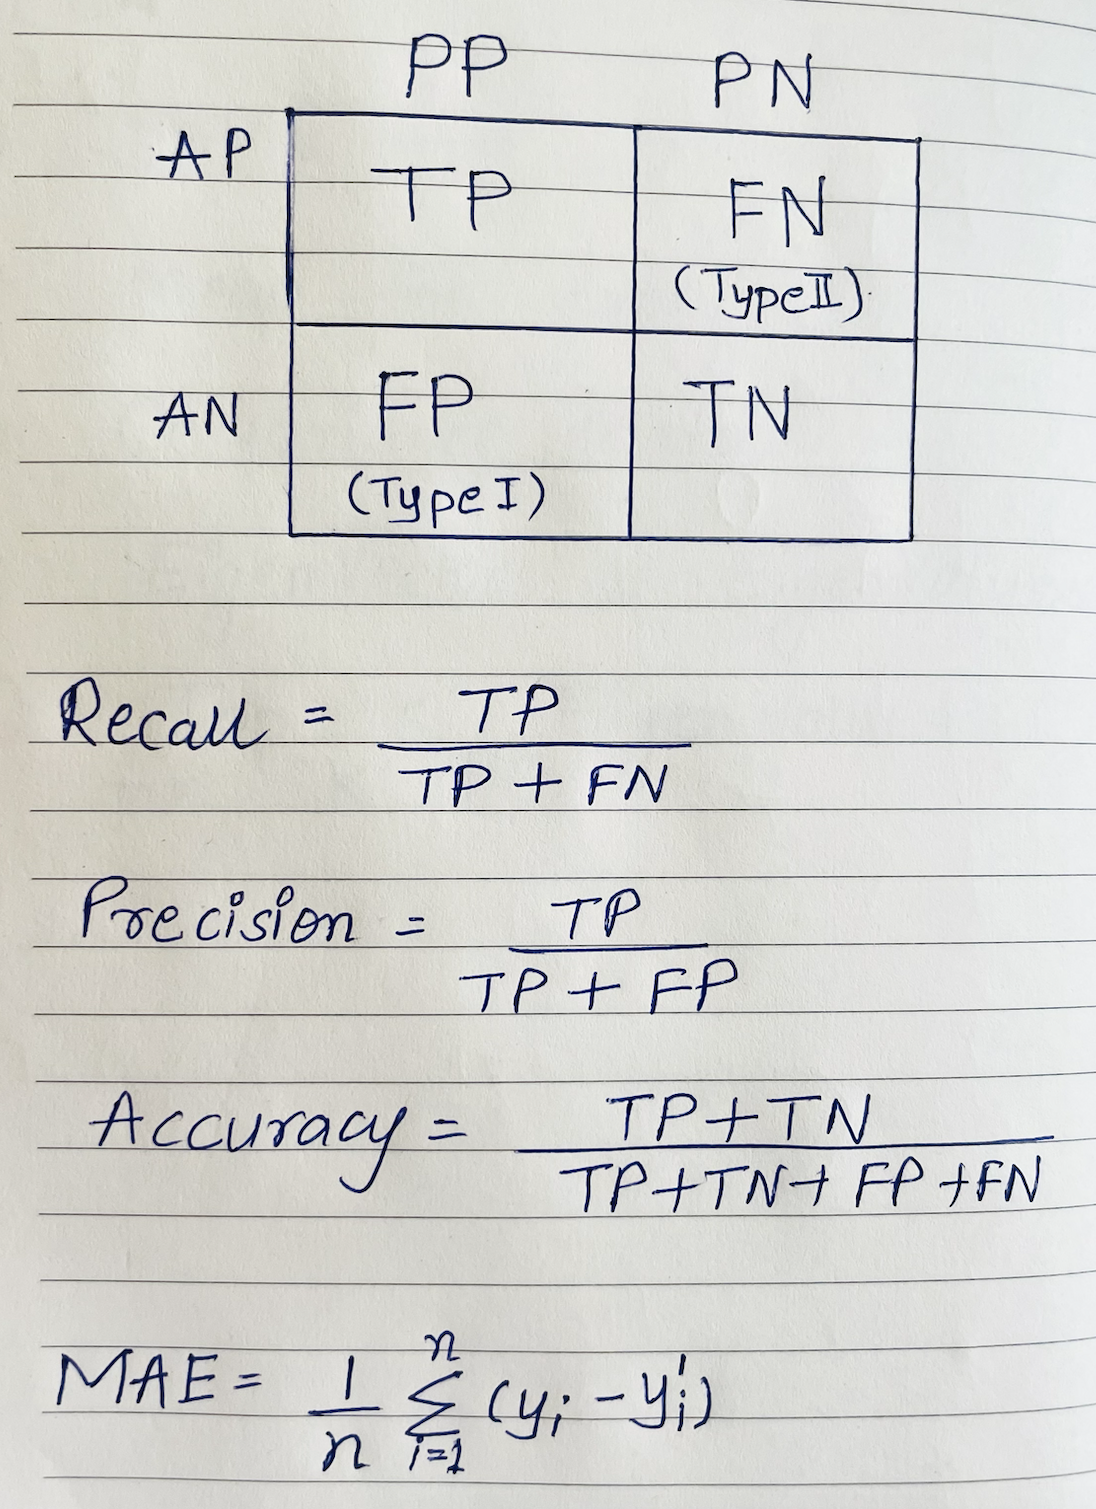 PP PN
AP TP FN
(Type II)
AN FP TN
(Type I)
Recall = TP / TP + FN
Precision = TP / TP + FP
Accuracy = TP+TN / TP+TN+FP+FN
MAE = 1/n Σ_{i=1}^{n} (y_i - y'_i)